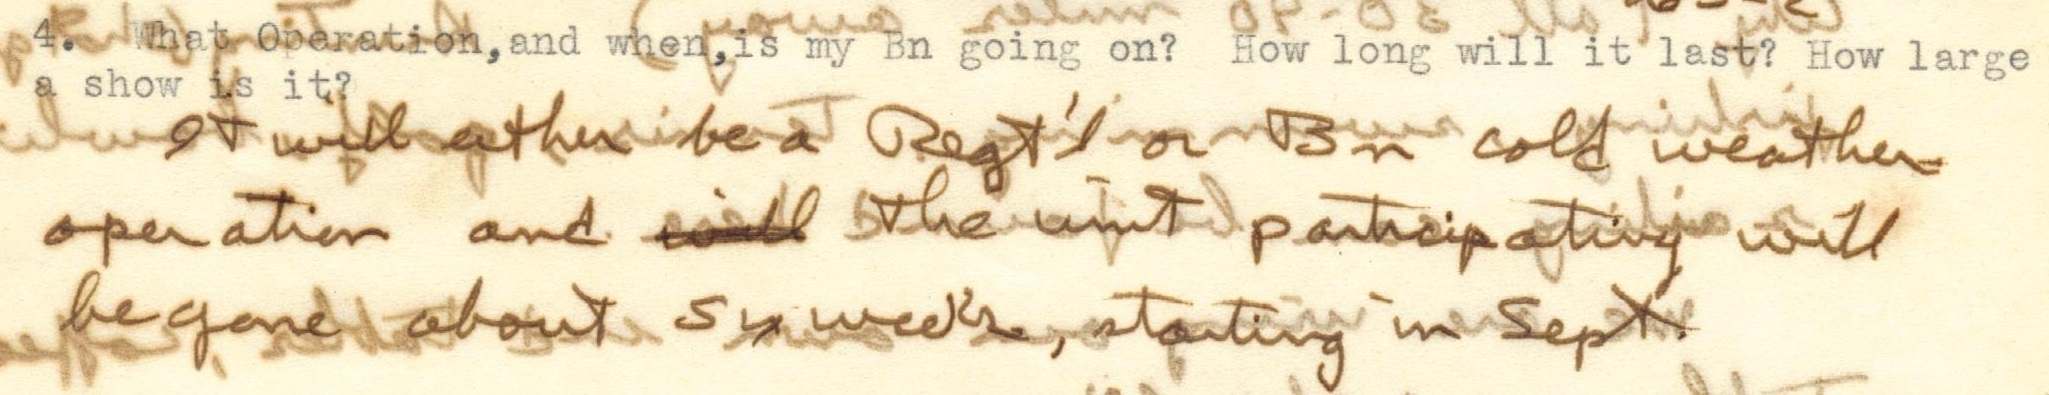 4.  What Operation,and when,is my Bn going on?  How long will it last? How large
a show is it?
It will either be a Regt'l or Bn cold weather
operation and will the unit participating will
be gone about six weeks, starting in Sept.